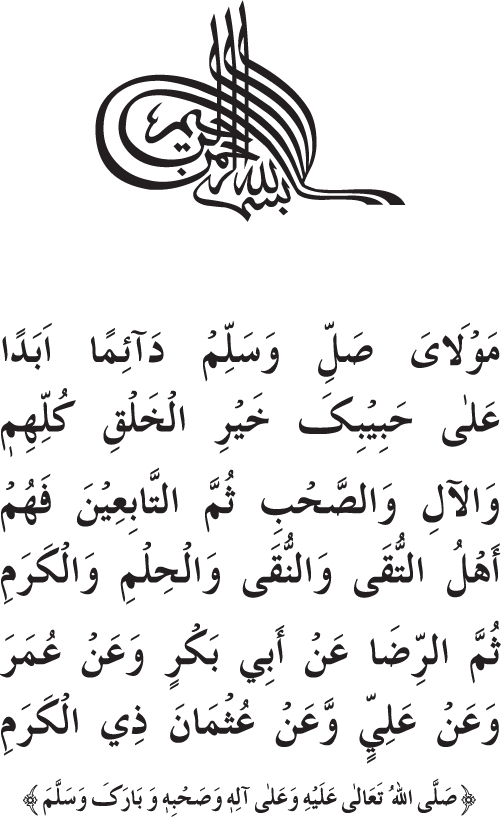 بسم الله الرحمن الرحيم
مَوْلَايَ صَلِّ وَسَلِّمْ دَآئِمًا اَبَدًا
عَلٰى حَبِيْبِكَ خَيْرِ الْخَلْقِ كُلِّهِمٖ
وَالآلِ وَالصَّحْبِ ثُمَّ التَّابِعِيْنَ فَهُمْ
أَهْلُ التُّقَى وَالنُّقَى وَالْحِلْمِ وَالْكَرَمِ
ثُمَّ الرِّضَا عَنْ أَبِي بَكْرٍ وَعَنْ عُمَرَ
وَعَنْ عَلِيٍّ وَّعَنْ عُثْمَانَ ذِي الْكَرَمِ
﴿صَلَّى اللهُ تَعَالٰى عَلَيْهِ وَعَلٰى آلِهٖ وَصَحْبِهٖ وَ بَارَكَ وَسَلَّمَ﴾